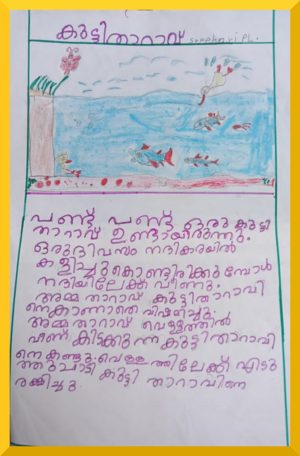 കുട്ടിതാറാവ്
പണ്ട് പണ്ട് ഒരു കുട്ടി
താറാവ് ഉണ്ടായിരുന്നു.
ഒരുദിവസം നദികരയിൽ
കളിച്ചുകൊണ്ടിരിക്കുമ്പോൾ
നദിയിലേക്ക് വീണു.
അമ്മ താറാവ് കുട്ടിതാറാവി
നെകാണാതെ വിഷമിച്ചു.
അമ്മതാറാവ് വെള്ളത്തിൽ
വീണ് കിടക്കുന്ന കുട്ടിതാറാവി
നെ കണ്ടു. വെള്ളത്തിലേക്ക് എടു
ത്തുചാടി കുട്ടി താറാവിനെ
രക്ഷിച്ചു.